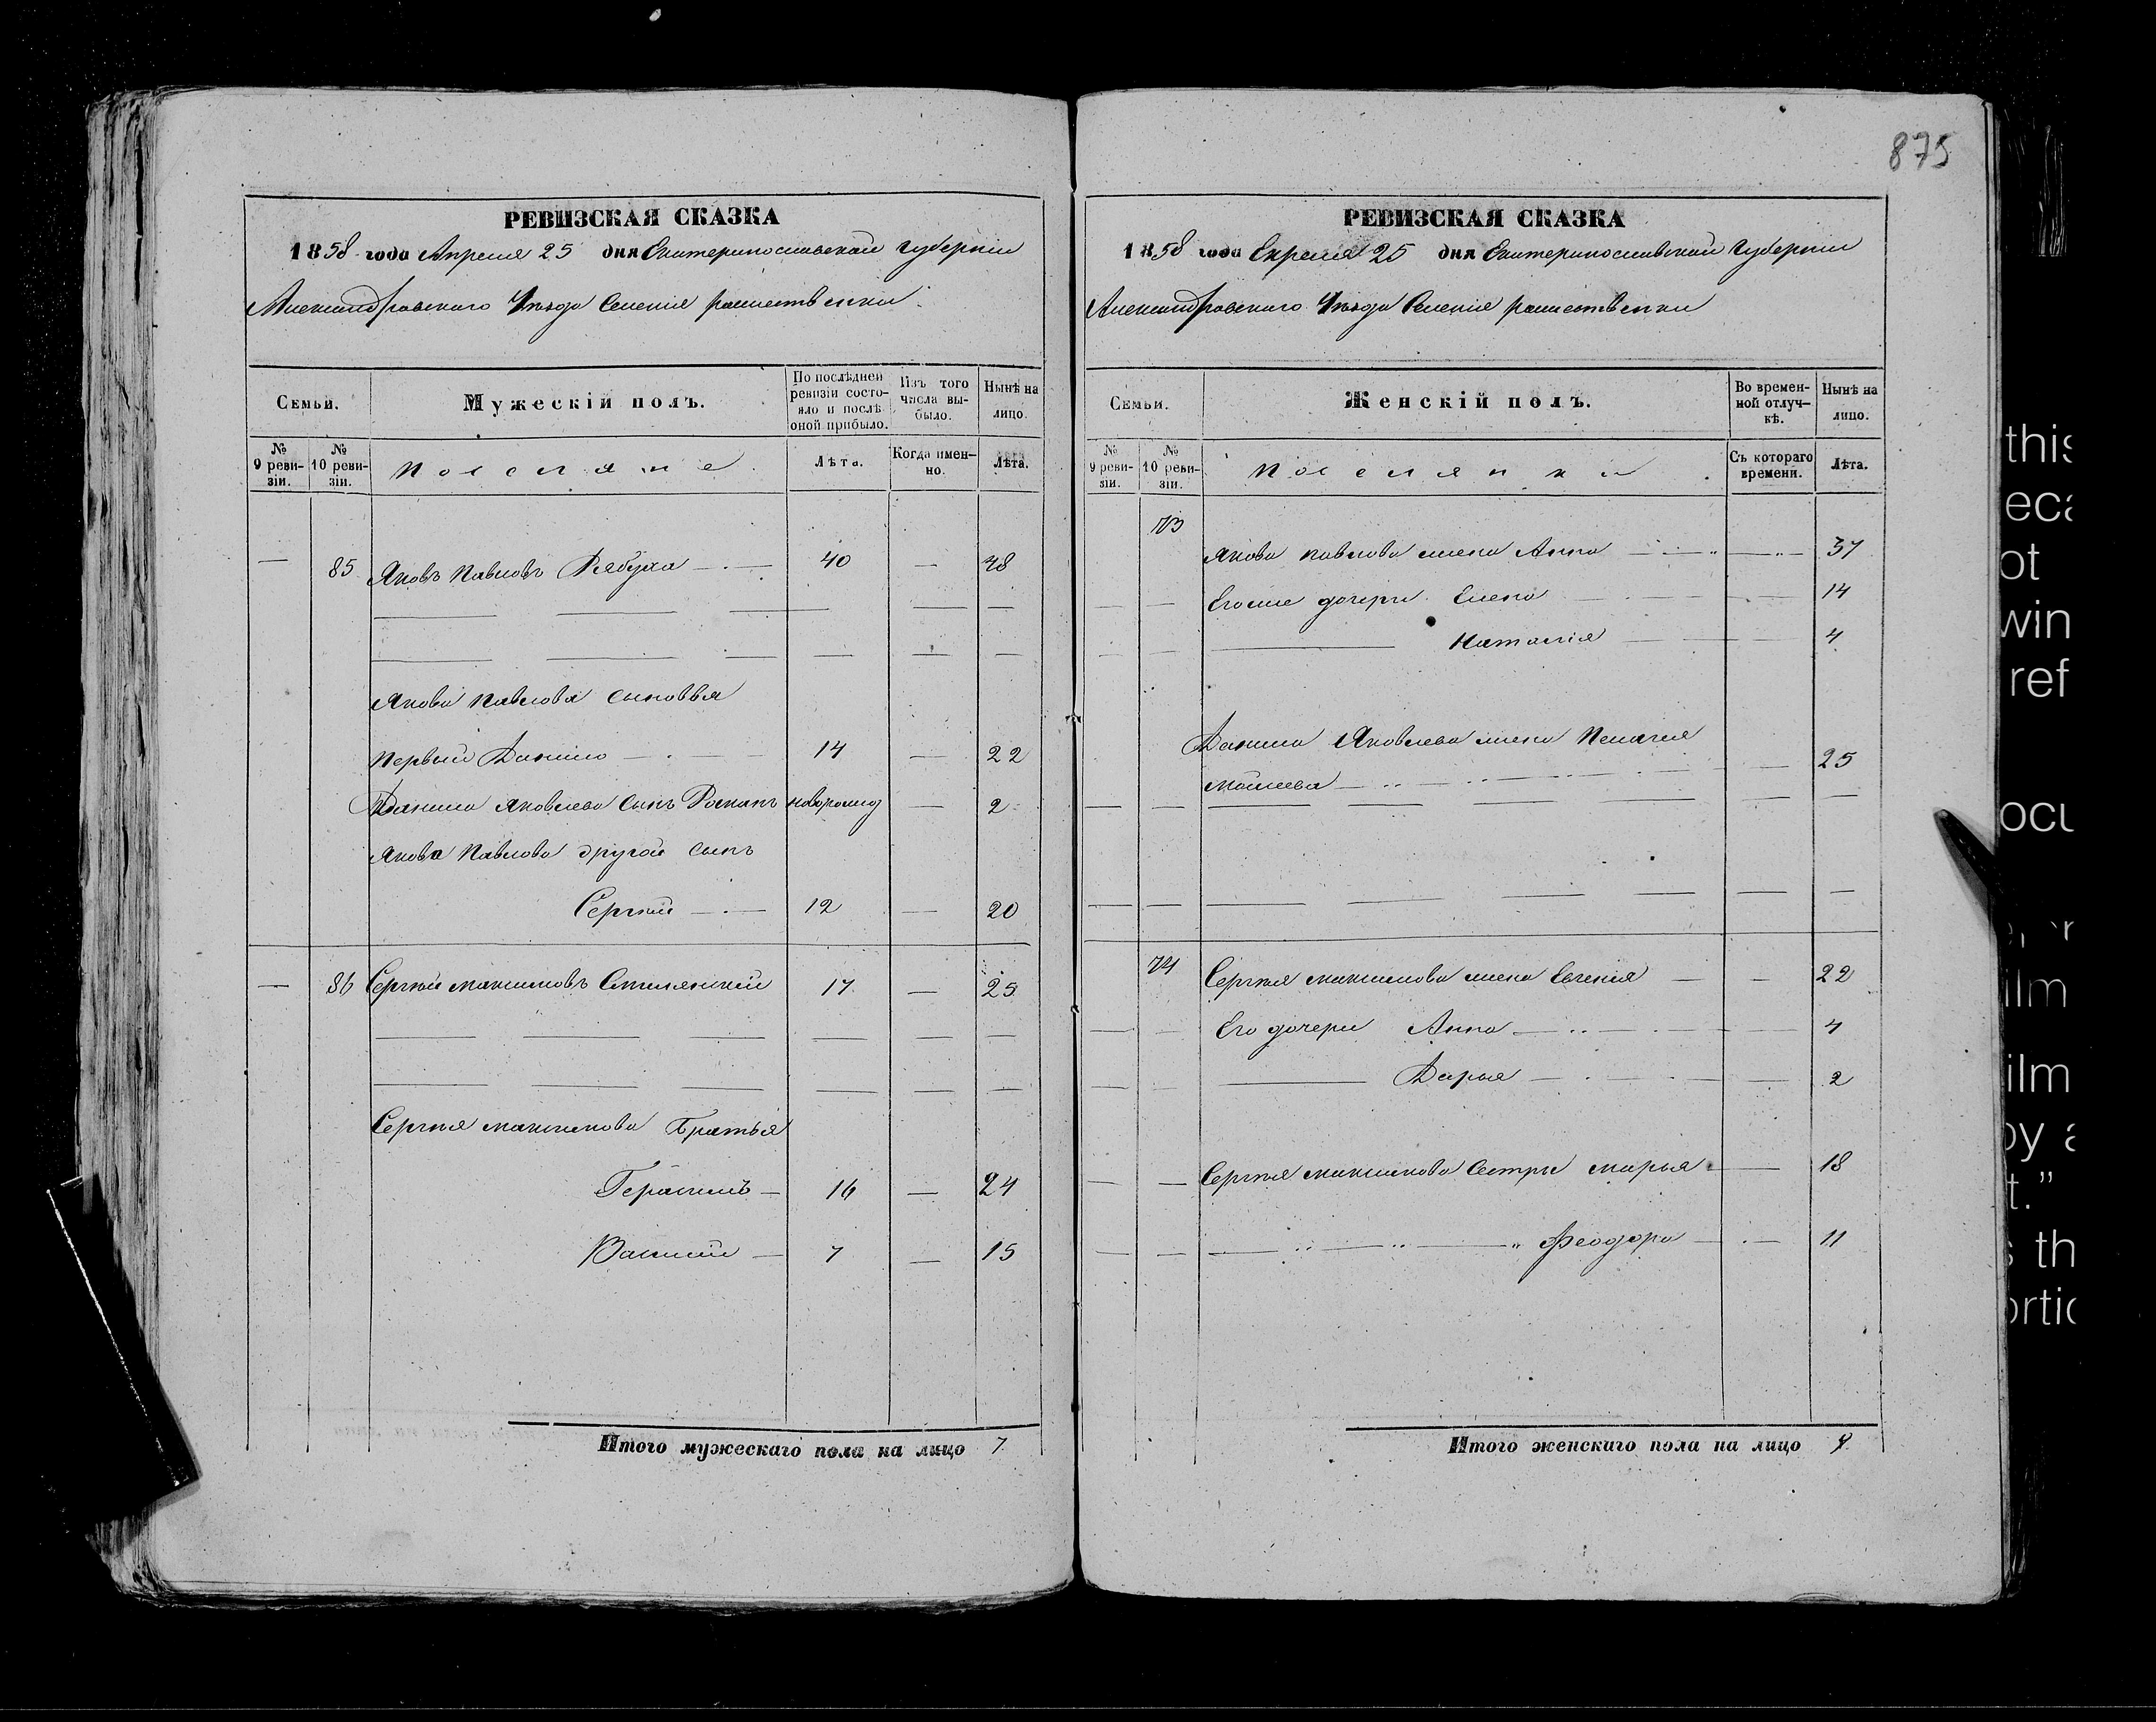 875
РЕВИЗСКАЯ СКАЗКА
1858 года Апреля 25 дня Екатеринославской Губерніи
Александровскаго Уѣзда Селенія
Семьи.
Мужескій полъ.
По послѣдней ревизіи состояло и послѣ оной прибыло.
Изъ того числа выбыло.
Нынѣ на лицо.
№ 9 ревизіи.
№ 10 ревизіи.
Поселяне
Лѣта.
Когда именно.
Лѣта.
— 85 Яковъ Павловъ Рябуха — 40 — 48
Якова Павлова сыновья
Первый Данило — 14 — 22
Данила Яковлева сынъ Романъ новорожд — 2
Якова Павлова другой сынъ
Сергѣй — 12 — 20
— 86 Сергѣй Максимовъ 17 — 25
Сергѣя Максимова Братья
Герасимъ — 16 — 24
Василій — 7 — 15
Итого мужескаго пола на лицо 7
РЕВИЗСКАЯ СКАЗКА
1858 года 25 дня Екатеринославской Губерніи
Александровскаго Уѣзда Селенія
Семьи.
Женскій полъ.
Во временной отлучкѣ.
Нынѣ на лицо.
№ 9 ревизіи.
№ 10 ревизіи.
Поселянки
Съ котораго времени.
Лѣта.
73
Якова Павлова жена Анна — 37
Егоже дочери Елена — 14
Наталія — 4
Данила Яковлева жена Пелагея
— 25
74 Сергѣя Максимова жена Евгенія — 22
Его дочери Анна — 4
Дарья — 2
Сергѣя Максимова Сестры Марья — 18
Феодора — 11
Итого женскаго пола на лицо
this
ot
win
ref
ocu
ilm
ilm
by a
t.”
s th
ortic